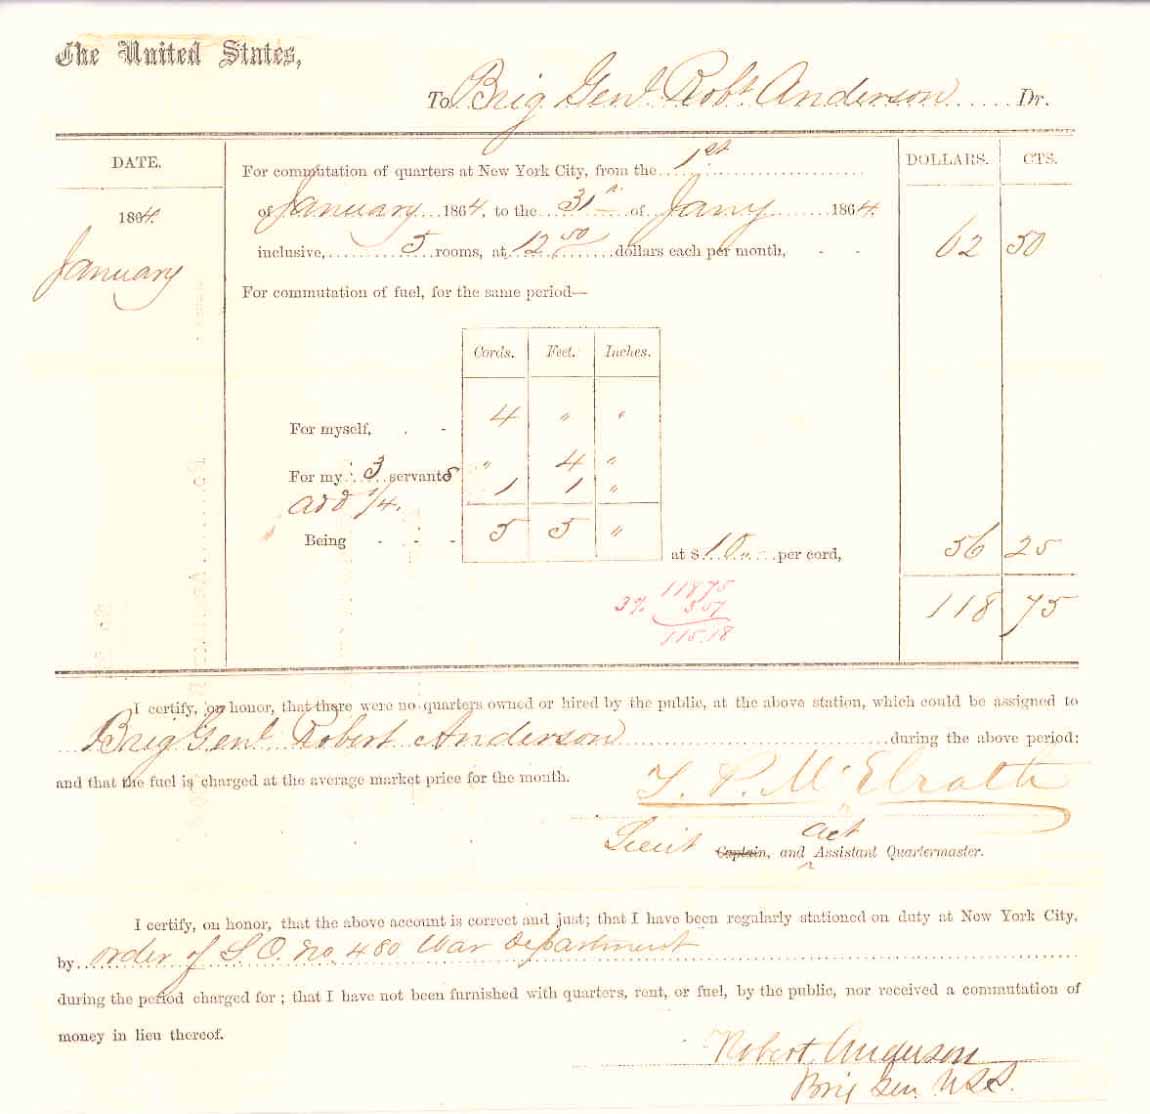 The United States,
To Brig Genl. Robt Anderson ..... Dr.
DATE. DOLLARS. CTS.
For commutation of quarters at New York City, from the 1st
1864. of January 1864, to the 31st of Jany 1864.
January inclusive, 5 rooms, at 12 50 dollars each per month, - - 62 50
For commutation of fuel, for the same period—
Cords. Feet. Inches.
For myself, . - 4 " "
For my 3 servants " 4 "
add 1/4. 1 1 "
Being - - - 5 5 " at $ 10 per cord, 56 25
118 75
118 75
3% 3 57
115.18
I certify, on honor, that there were no quarters owned or hired by the public, at the above station, which could be assigned to
Brig Genl. Robert Anderson during the above period:
and that the fuel is charged at the average market price for the month.
T. P. McElrath
Lieut Captain, and Act Assistant Quartermaster.
I certify, on honor, that the above account is correct and just; that I have been regularly stationed on duty at New York City,
by order of S. O. No 480 War Department
during the period charged for; that I have not been furnished with quarters, rent, or fuel, by the public, nor received a commutation of
money in lieu thereof.
Robert Anderson
Brig Gen. U.S.A.